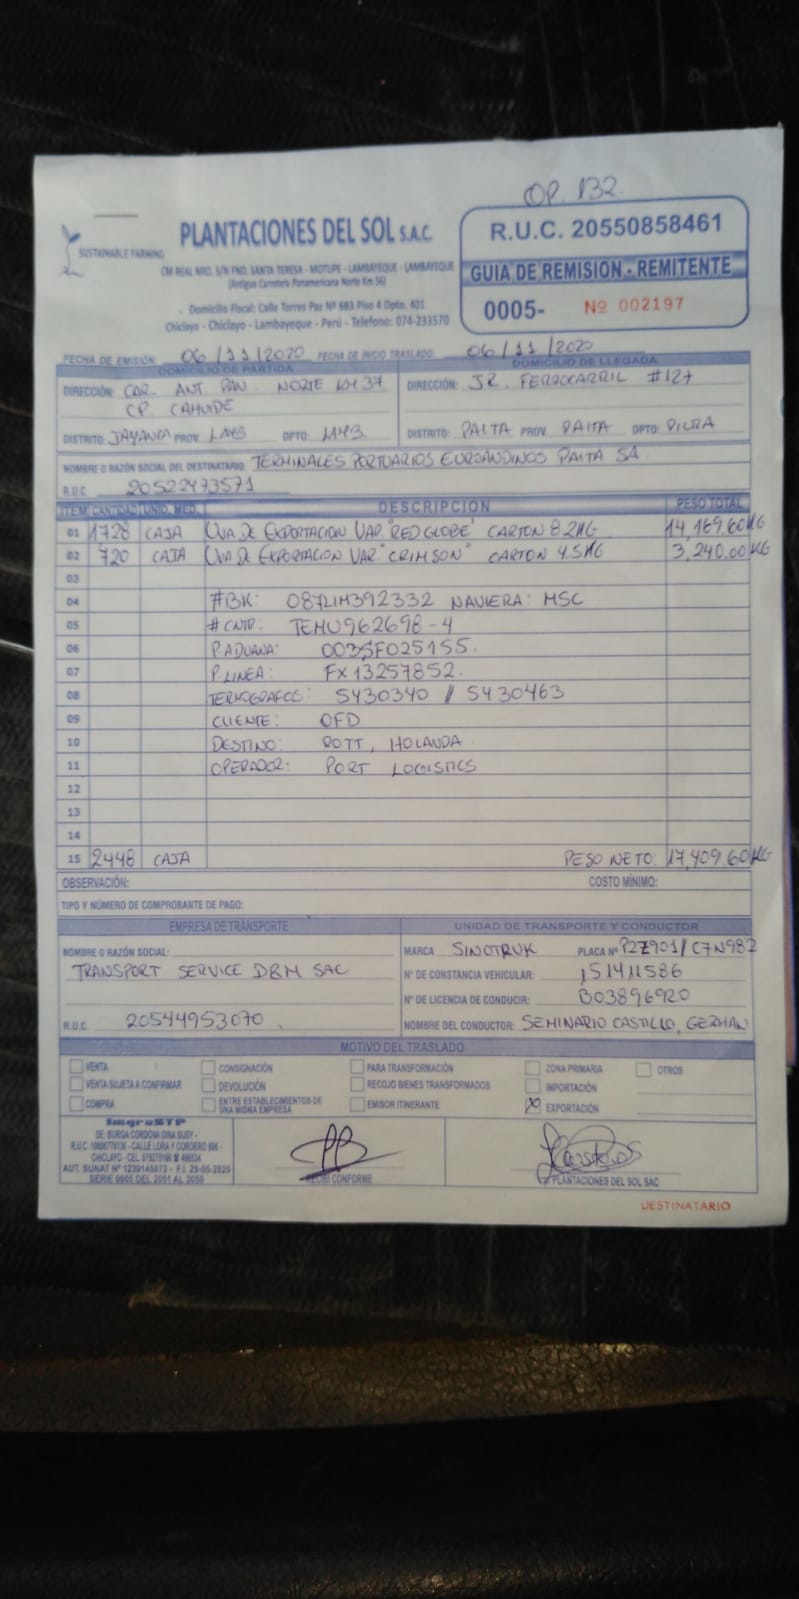 OP. 132.
SUSTAINABLE FARMING
PLANTACIONES DEL SOL S.A.C.
CM REAL NRO. S/N FND. SANTA TERESA - MOTUPE - LAMBAYEQUE - LAMBAYEQUE
(Antigua Carretera Panamericana Norte Km 56)
Domicilio Fiscal: Calle Torres Paz Nº 683 Piso 4 Dpto. 401
Chiclayo - Chiclayo - Lambayeque - Perú - Telefono: 074-233570
R.U.C. 20550858461
GUIA DE REMISION - REMITENTE
0005- Nº 002197
FECHA DE EMISIÓN: 06/11/2020 FECHA DE INICIO TRASLADO: 06/11/2020
DOMICILIO DE PARTIDA
DIRECCIÓN: CAR. ANT. PAN. NORTE KM 37
CP CAHUIDE
DISTRITO: JAYANCA PROV. LAMB DPTO: LAMB.
DOMICILIO DE LLEGADA
DIRECCIÓN: JR. FERROCARRIL #127
DISTRITO: PAITA PROV. PAITA DPTO: PIURA
NOMBRE O RAZÓN SOCIAL DEL DESTINATARIO: TERMINALES PORTUARIOS EUROANDINOS PAITA SA.
R.U.C. 20522473571
ITEM CANTIDAD UNID. MED. DESCRIPCION PESO TOTAL
01 1728 CAJA UVA DE EXPORTACION VAR "RED GLOBE" CARTON 8.2KG 14,169.60KG
02 720 CAJA UVA DE EXPORTACION VAR "CRIMSON" CARTON 4.5KG 3,240.00KG
03
04 #BK: 087LIM392332 NAVIERA: MSC
05 # CNTR: TEMU962698-4
06 P.ADUANA: 003SF025155.
07 P.LINEA: FX13257852.
08 TERMOGRAFOS: 5430340 // 5430463
09 CLIENTE: OFD
10 DESTINO: ROTT, HOLANDA
11 OPERADOR: PORT LOGISTICS
12
13
14
15 2448 CAJA PESO NETO: 17,409.60KG
OBSERVACIÓN: COSTO MÍNIMO:
TIPO Y NÚMERO DE COMPROBANTE DE PAGO:
EMPRESA DE TRANSPORTE
NOMBRE O RAZÓN SOCIAL:
TRANSPORT SERVICE D&M SAC
R.U.C. 20544953070
UNIDAD DE TRANSPORTE Y CONDUCTOR
MARCA SINOTRUK PLACA Nº P2Z901/C7N982
Nº DE CONSTANCIA VEHICULAR: 151411586
Nº DE LICENCIA DE CONDUCIR: B03896920
NOMBRE DEL CONDUCTOR: SEMINARIO CASTILLO, GERMAN
MOTIVO DEL TRASLADO
VENTA CONSIGNACIÓN PARA TRANSFORMACIÓN ZONA PRIMARIA OTROS
VENTA SUJETA A CONFIRMAR DEVOLUCIÓN RECOJO BIENES TRANSFORMADOS IMPORTACIÓN
COMPRA ENTRE ESTABLECIMIENTOS DE UNA MISMA EMPRESA EMISOR ITINERANTE X EXPORTACIÓN
ImgraSYP
DE: BURGA CORDOVA DINA SUSY -
CALLE LORA Y CORDERO
CHICLAYO - CEL.
AUT. SUNAT Nº 1239145073 - F.I. 29-05-2020
SERIE 0005 DEL 2051 AL 3050
RECIBI CONFORME
PLANTACIONES DEL SOL SAC
DESTINATARIO